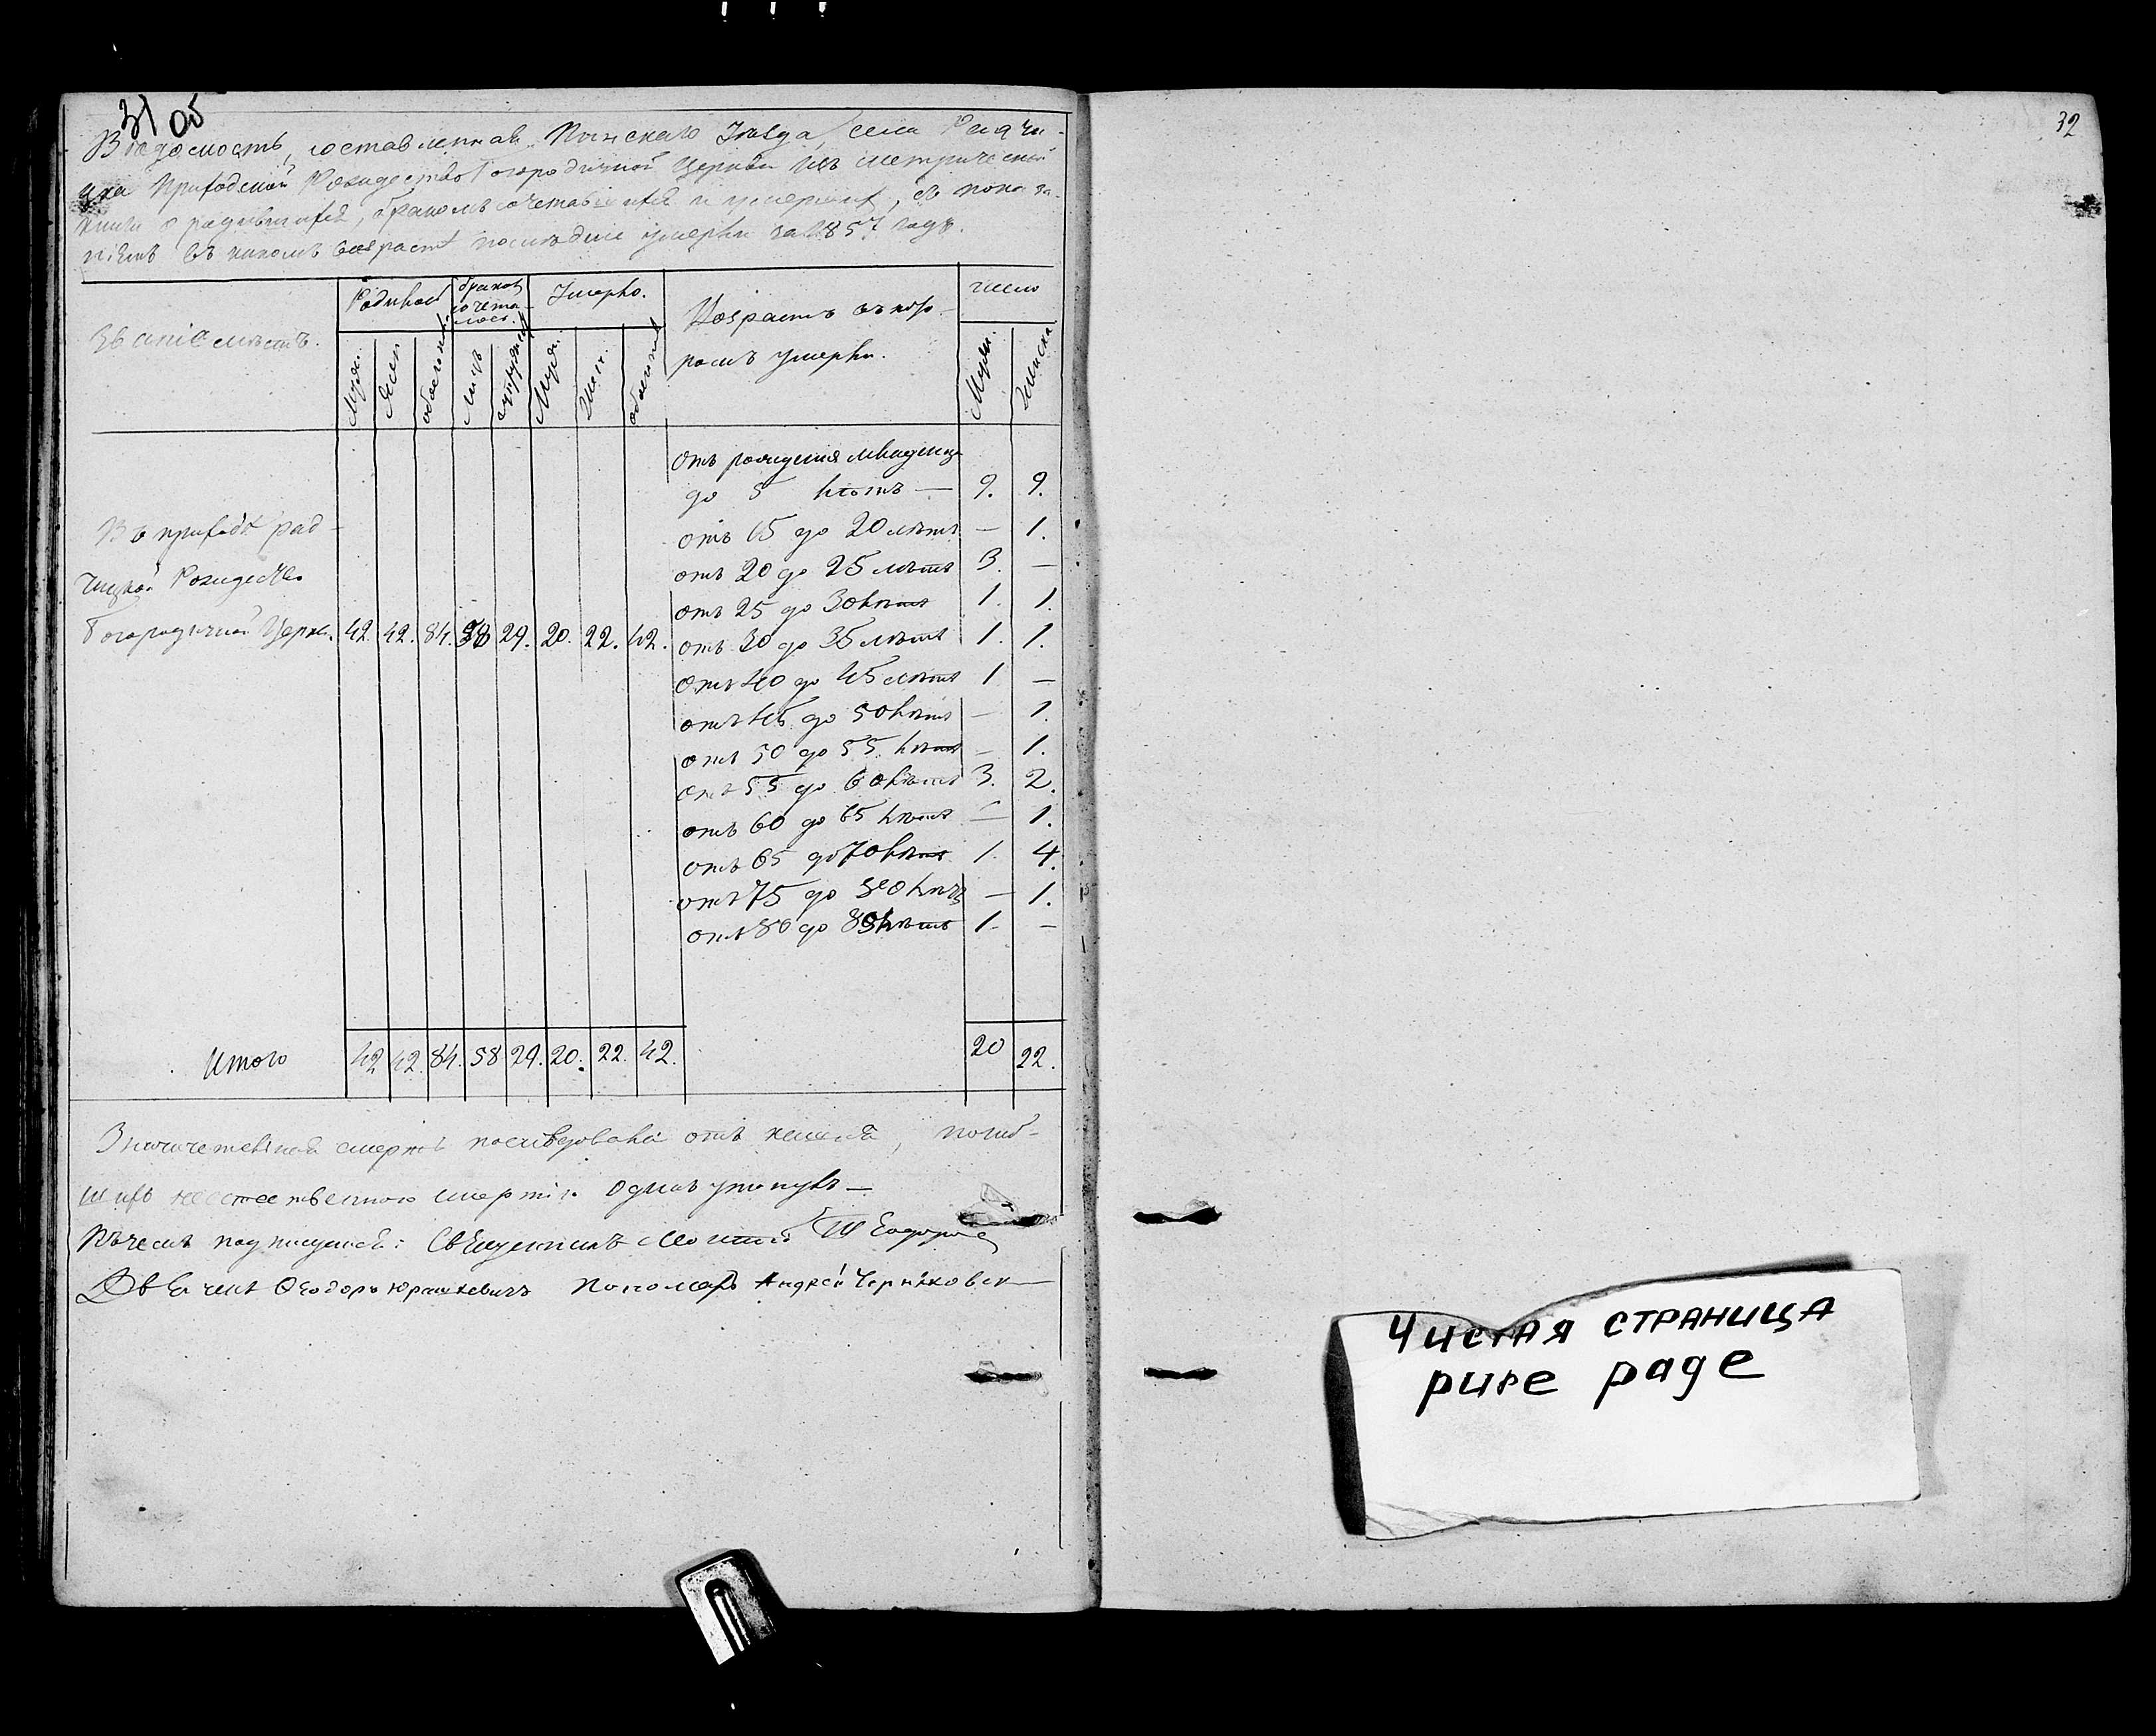 31 об
Вѣдомость, составленная Пинскаго Уѣзда, села Радчи-
цка Приходской Рождество Богородичной Церкви изъ метрической
книги о родившихся, бракомъ сочетавшихся и умершихъ, съ показа-
ніемъ въ какомъ возрастѣ послѣдніе умерли за 1857 годъ.
Званіе мѣстъ.
Родилось
браковъ сочета-лось.
Умерло.
Возрастъ въ кото-
ромъ умерли.
число
Муж.
Жен.
обоего п.
лицъ
супружест
Муж.
Жен.
обоего п.
Муж.
Женска
отъ рожденія младенца
до 5 лѣтъ — 9. 9.
отъ 15 до 20 лѣтъ — 1.
отъ 20 до 25 лѣтъ 3. —
отъ 25 до 30 лѣтъ 1. 1.
Въ приходѣ рад-
чицкой Рождество
Богородичной Церкв. 42. 42. 84. 58 29. 20. 22. 42. отъ 30 до 35 лѣтъ 1. 1.
отъ 40 до 45 лѣтъ 1 —
отъ 45 до 50 лѣтъ — 1.
отъ 50 до 55 лѣтъ — 1.
отъ 55 до 60 лѣтъ 3. 2.
отъ 60 до 65 лѣтъ — 1.
отъ 65 до 70 лѣтъ 1. 4.
отъ 75 до 80 лѣтъ — 1.
отъ 80 до 85 лѣтъ 1. —
Итого 42 42. 84. 58 29. 20. 22. 42. 20 22.
смерть послѣдовала отъ кашля, погиб-
шихъ неестественною смертію одинъ утонувъ —
Въ чемъ подписуемся: Священникъ
Дьячекъ Ѳеодоръ Юрашкевичъ Пономарь Андрей Черняковск
32
Чистая страница
pure page